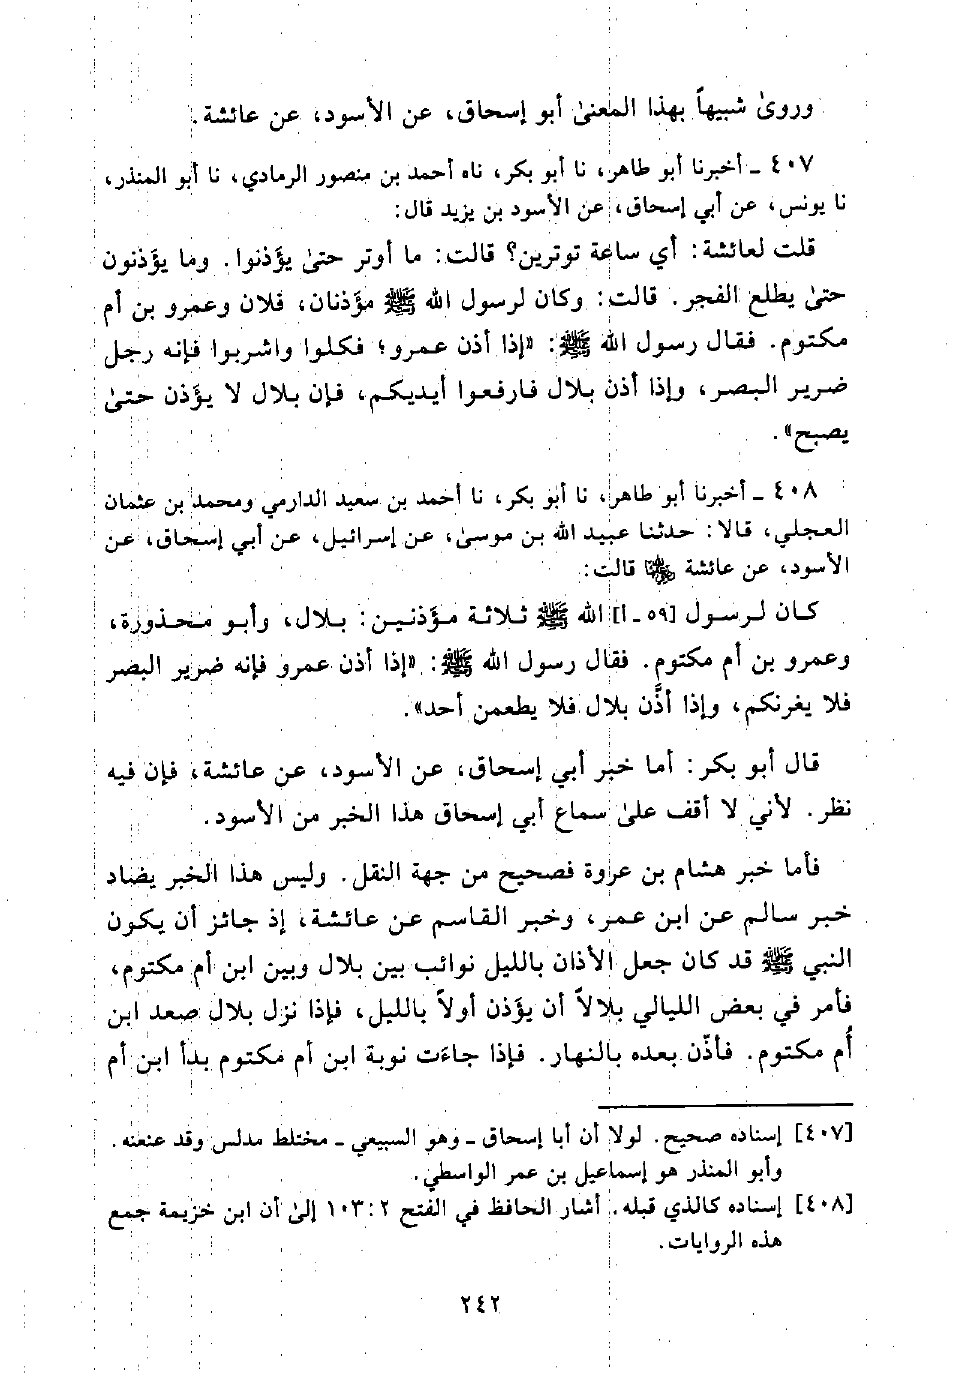 وروىٰ شبيهاً بهذا المعنىٰ أبو إسحاق، عن الأسود، عن عائشة.
٤٠٧ ـ أخبرنا أبو طاهر، نا أبو بكر، ناه أحمد بن منصور الرمادي، نا أبو المنذر،
نا يونس، عن أبي إسحاق، عن الأسود بن يزيد قال:
قلت لعائشة: أي ساعة توترين؟ قالت: ما أوتر حتىٰ يؤذنوا. وما يؤذنون
حتىٰ يطلع الفجر. قالت: وكان لرسول الله ﷺ مؤذنان، فلان وعمرو بن أم
مكتوم. فقال رسول الله ﷺ: «إذا أذن عمرو؛ فكلوا واشربوا فإنه رجل
ضرير البصر، وإذا أذن بلال فارفعوا أيديكم، فإن بلال لا يؤذن حتىٰ
يصبح».
٤٠٨ ـ أخبرنا أبو طاهر، نا أبو بكر، نا أحمد بن سعيد الدارمي ومحمد بن عثمان
العجلي، قالا: حدثنا عبيد الله بن موسىٰ، عن إسرائيل، عن أبي إسحاق، عن
الأسود، عن عائشة رضي الله عنها قالت:
كان لرسول [٥٩ ـ أ] الله ﷺ ثلاثة مؤذنين: بلال، وأبو محذورة،
وعمرو بن أم مكتوم. فقال رسول الله ﷺ: «إذا أذن عمرو فإنه ضرير البصر
فلا يغرنكم، وإذا أذَّن بلال فلا يطعمن أحد».
قال أبو بكر: أما خبر أبي إسحاق، عن الأسود، عن عائشة، فإن فيه
نظر. لأني لا أقف علىٰ سماع أبي إسحاق هذا الخبر من الأسود.
فأما خبر هشام بن عروة فصحيح من جهة النقل. وليس هذا الخبر يضاد
خبر سالم عن ابن عمر، وخبر القاسم عن عائشة، إذ جائز أن يكون
النبي ﷺ قد كان جعل الأذان بالليل نوائب بين بلال وبين ابن أم مكتوم،
فأمر في بعض الليالي بلالاً أن يؤذن أولاً بالليل، فإذا نزل بلال صعد ابن
أُم مكتوم. فأذّن بعده بالنهار. فإذا جاءت نوبة ابن أم مكتوم بدأ ابن أم
[٤٠٧] إسناده صحيح. لولا أن أبا إسحاق ـ وهو السبيعي ـ مختلط مدلس وقد عنعنه.
وأبو المنذر هو إسماعيل بن عمر الواسطي.
[٤٠٨] إسناده كالذي قبله. أشار الحافظ في الفتح ٢: ١٠٣ إلىٰ أن ابن خزيمة جمع
هذه الروايات.
٢٤٢